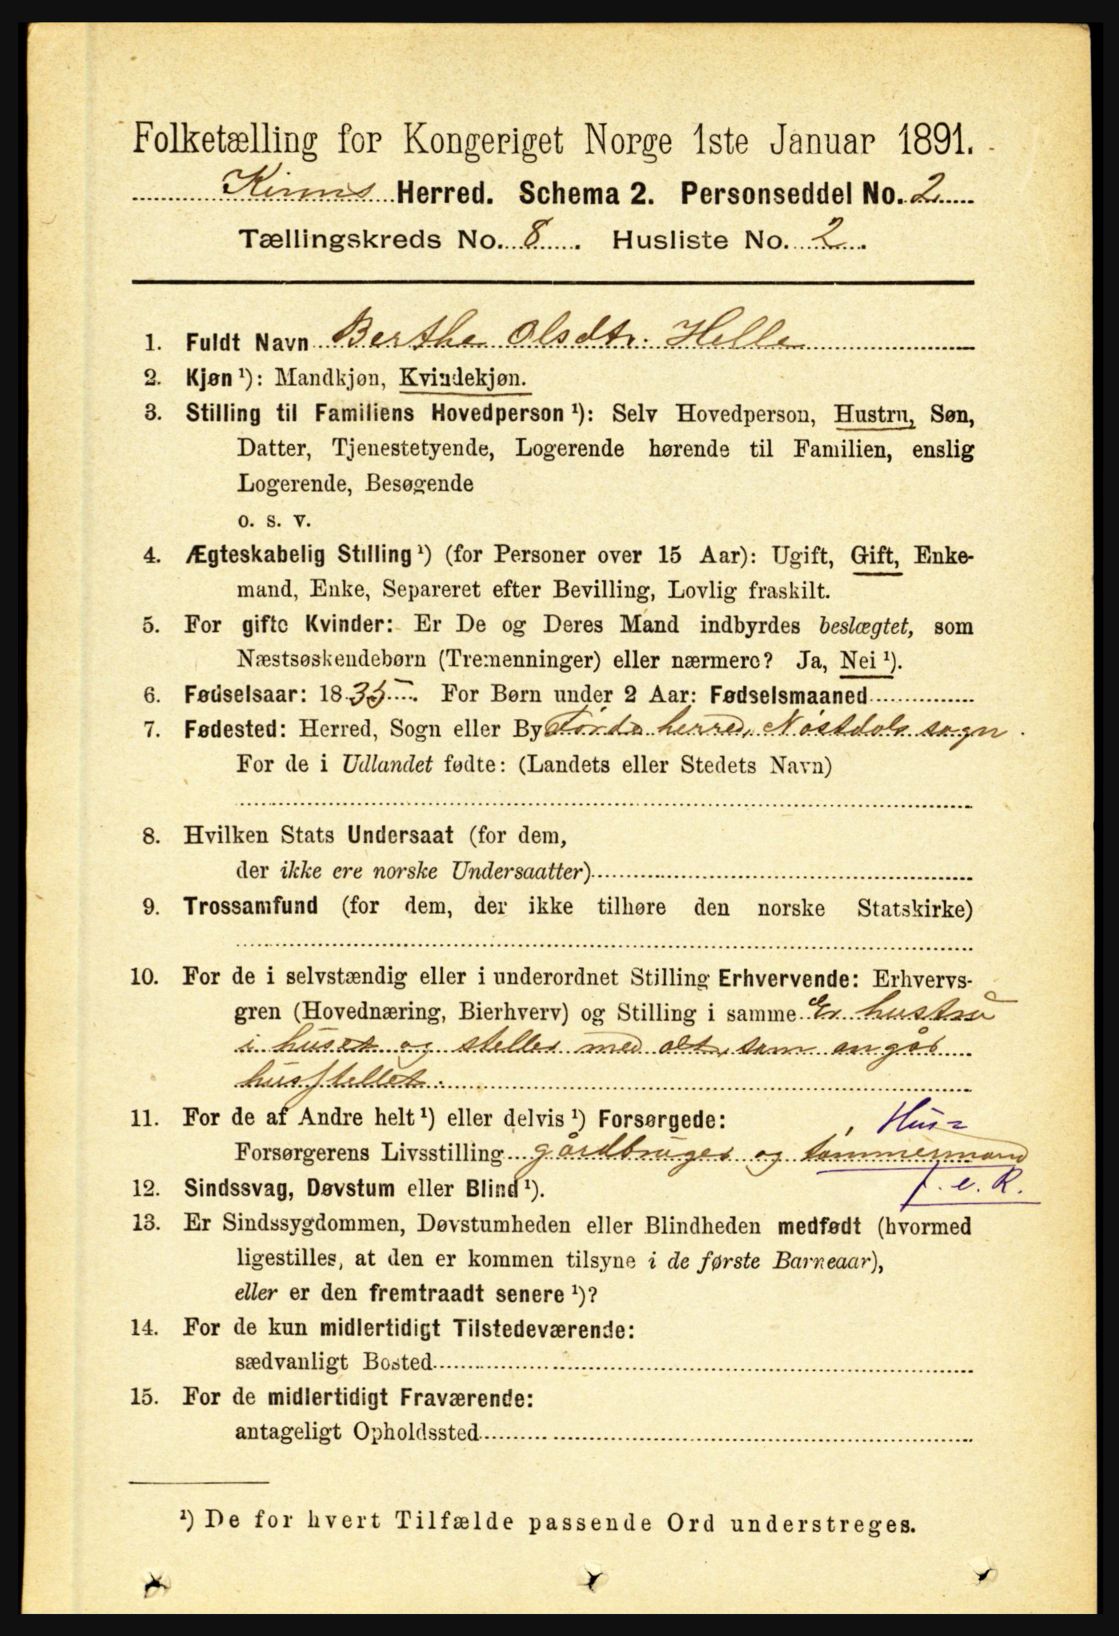 Folketælling for Kongeriget Norge 1ste Januar 1891.
Kinns Herred. Schema 2. Personseddel No. 2
Tællingskreds No. 8. Husliste No. 2.
1. Fuldt Navn Berthe Olsdtr. Helle
2. Kjøn ¹): Mandkjøn, Kvindekjøn.
3. Stilling til Familiens Hovedperson ¹): Selv Hovedperson, Hustru, Søn,
Datter, Tjenestetyende, Logerende hørende til Familien, enslig
Logerende, Besøgende
o. s. v.
4. Ægteskabelig Stilling ¹) (for Personer over 15 Aar): Ugift, Gift, Enke-
mand, Enke, Separeret efter Bevilling, Lovlig fraskilt.
5. For gifte Kvinder: Er De og Deres Mand indbyrdes beslægtet, som
Næstsøskendebørn (Tremenninger) eller nærmere? Ja, Nei ¹).
6. Fødselsaar: 1835. For Børn under 2 Aar: Fødselsmaaned
7. Fødested: Herred, Sogn eller By Førde herred, Nøstdals sogn.
For de i Udlandet fødte: (Landets eller Stedets Navn)
8. Hvilken Stats Undersaat (for dem,
der ikke ere norske Undersaatter)
9. Trossamfund (for dem, der ikke tilhøre den norske Statskirke)
10. For de i selvstændig eller i underordnet Stilling Erhvervende: Erhvervs-
gren (Hovednæring, Bierhverv) og Stilling i samme Er hustru
i huset og steller med alt, som angår
husstellet.
11. For de af Andre helt ¹) eller delvis ¹) Forsørgede: Hus=
Forsørgerens Livsstilling gårdbruger og tømmermand
12. Sindssvag, Døvstum eller Blind ¹). f. e. R.
13. Er Sindssygdommen, Døvstumheden eller Blindheden medfødt (hvormed
ligestilles, at den er kommen tilsyne i de første Barneaar),
eller er den fremtraadt senere ¹)?
14. For de kun midlertidigt Tilstedeværende:
sædvanligt Bosted
15. For de midlertidigt Fraværende:
antageligt Opholdssted
¹) De for hvert Tilfælde passende Ord understreges.